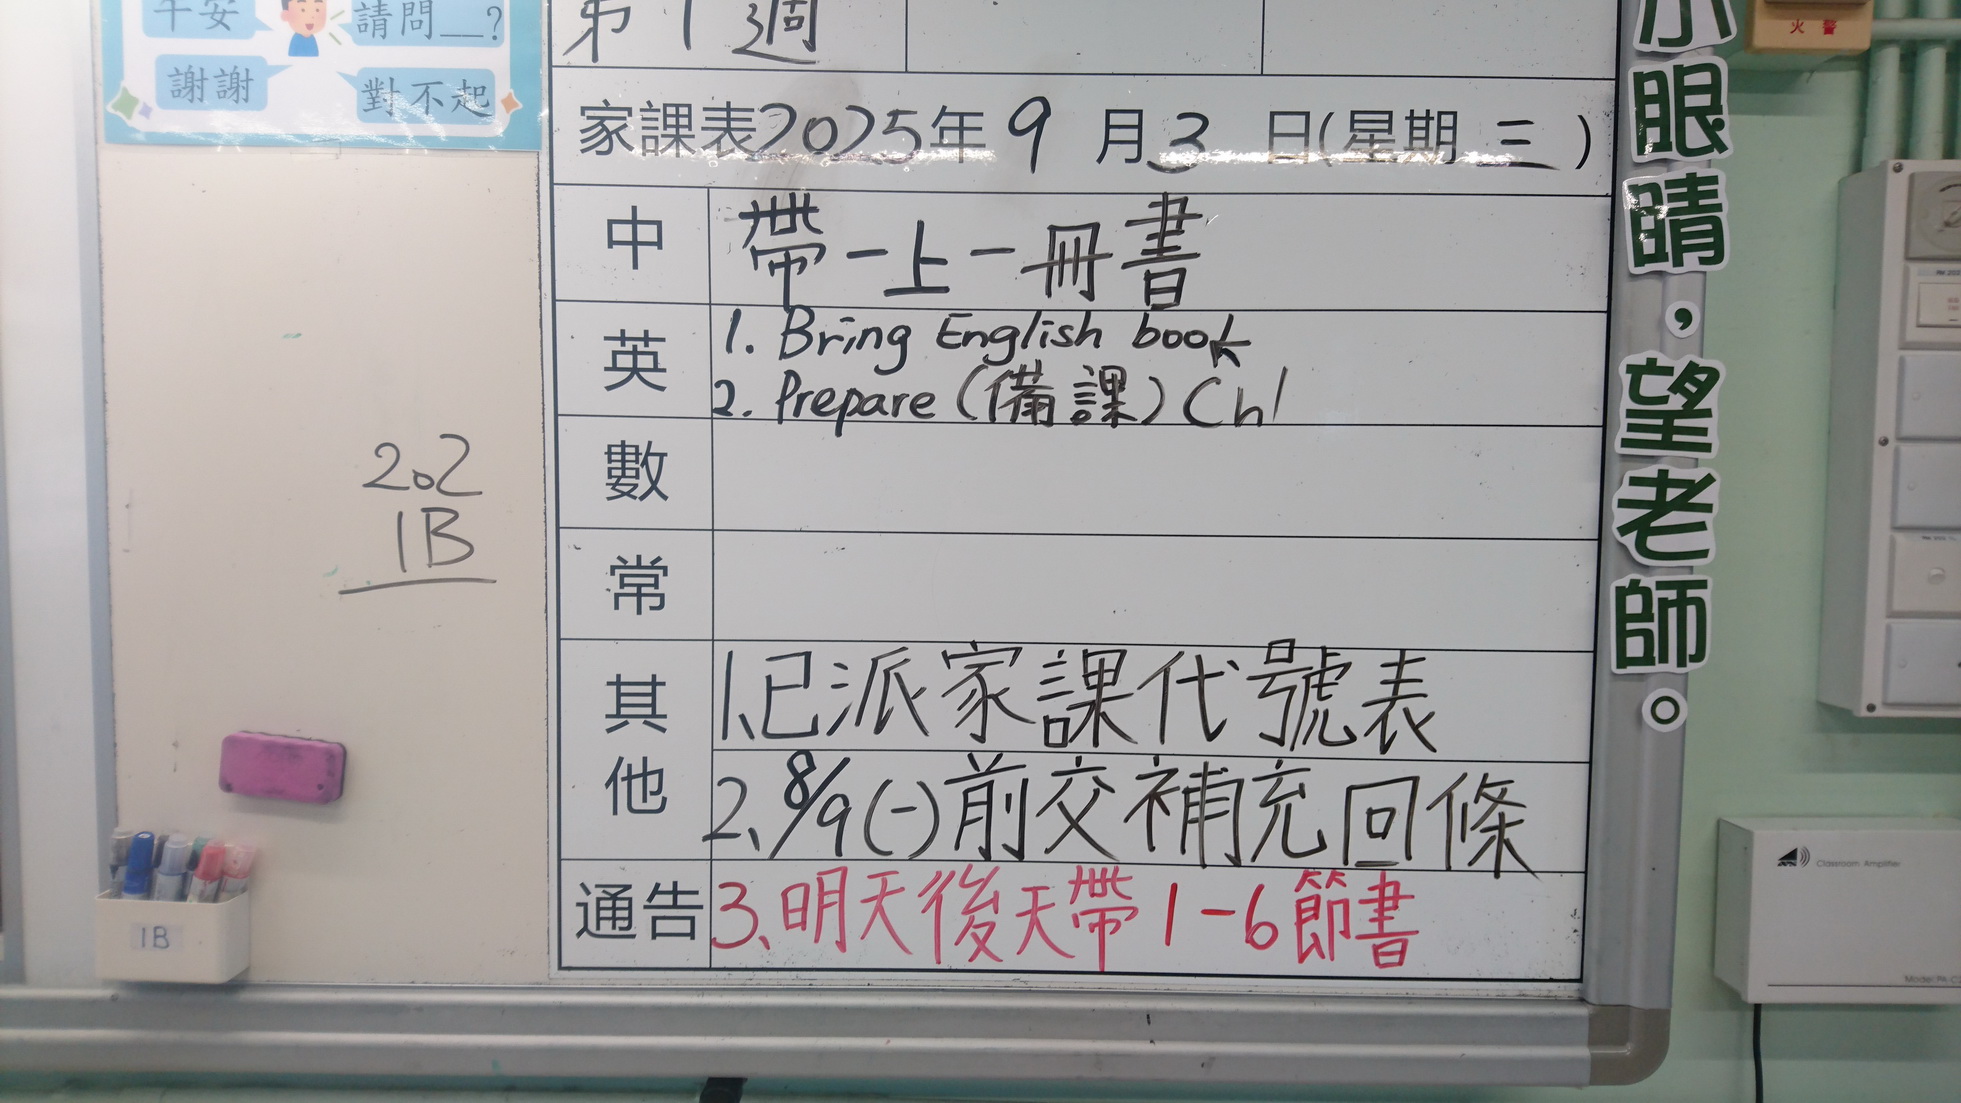 午安
請問__?
謝謝
對不起
第1週
家課表2025年9月3日(星期三)
中
帶一上一冊書
英
1. Bring English book
2. Prepare (備課) Ch1
數
常
其他
1、已派家課代號表
2、8/9(一)前交補充回條
通告
3、明天後天帶1-6節書
202
1B
1B
小眼睛，望老師。
火警
Classroom Amplifier